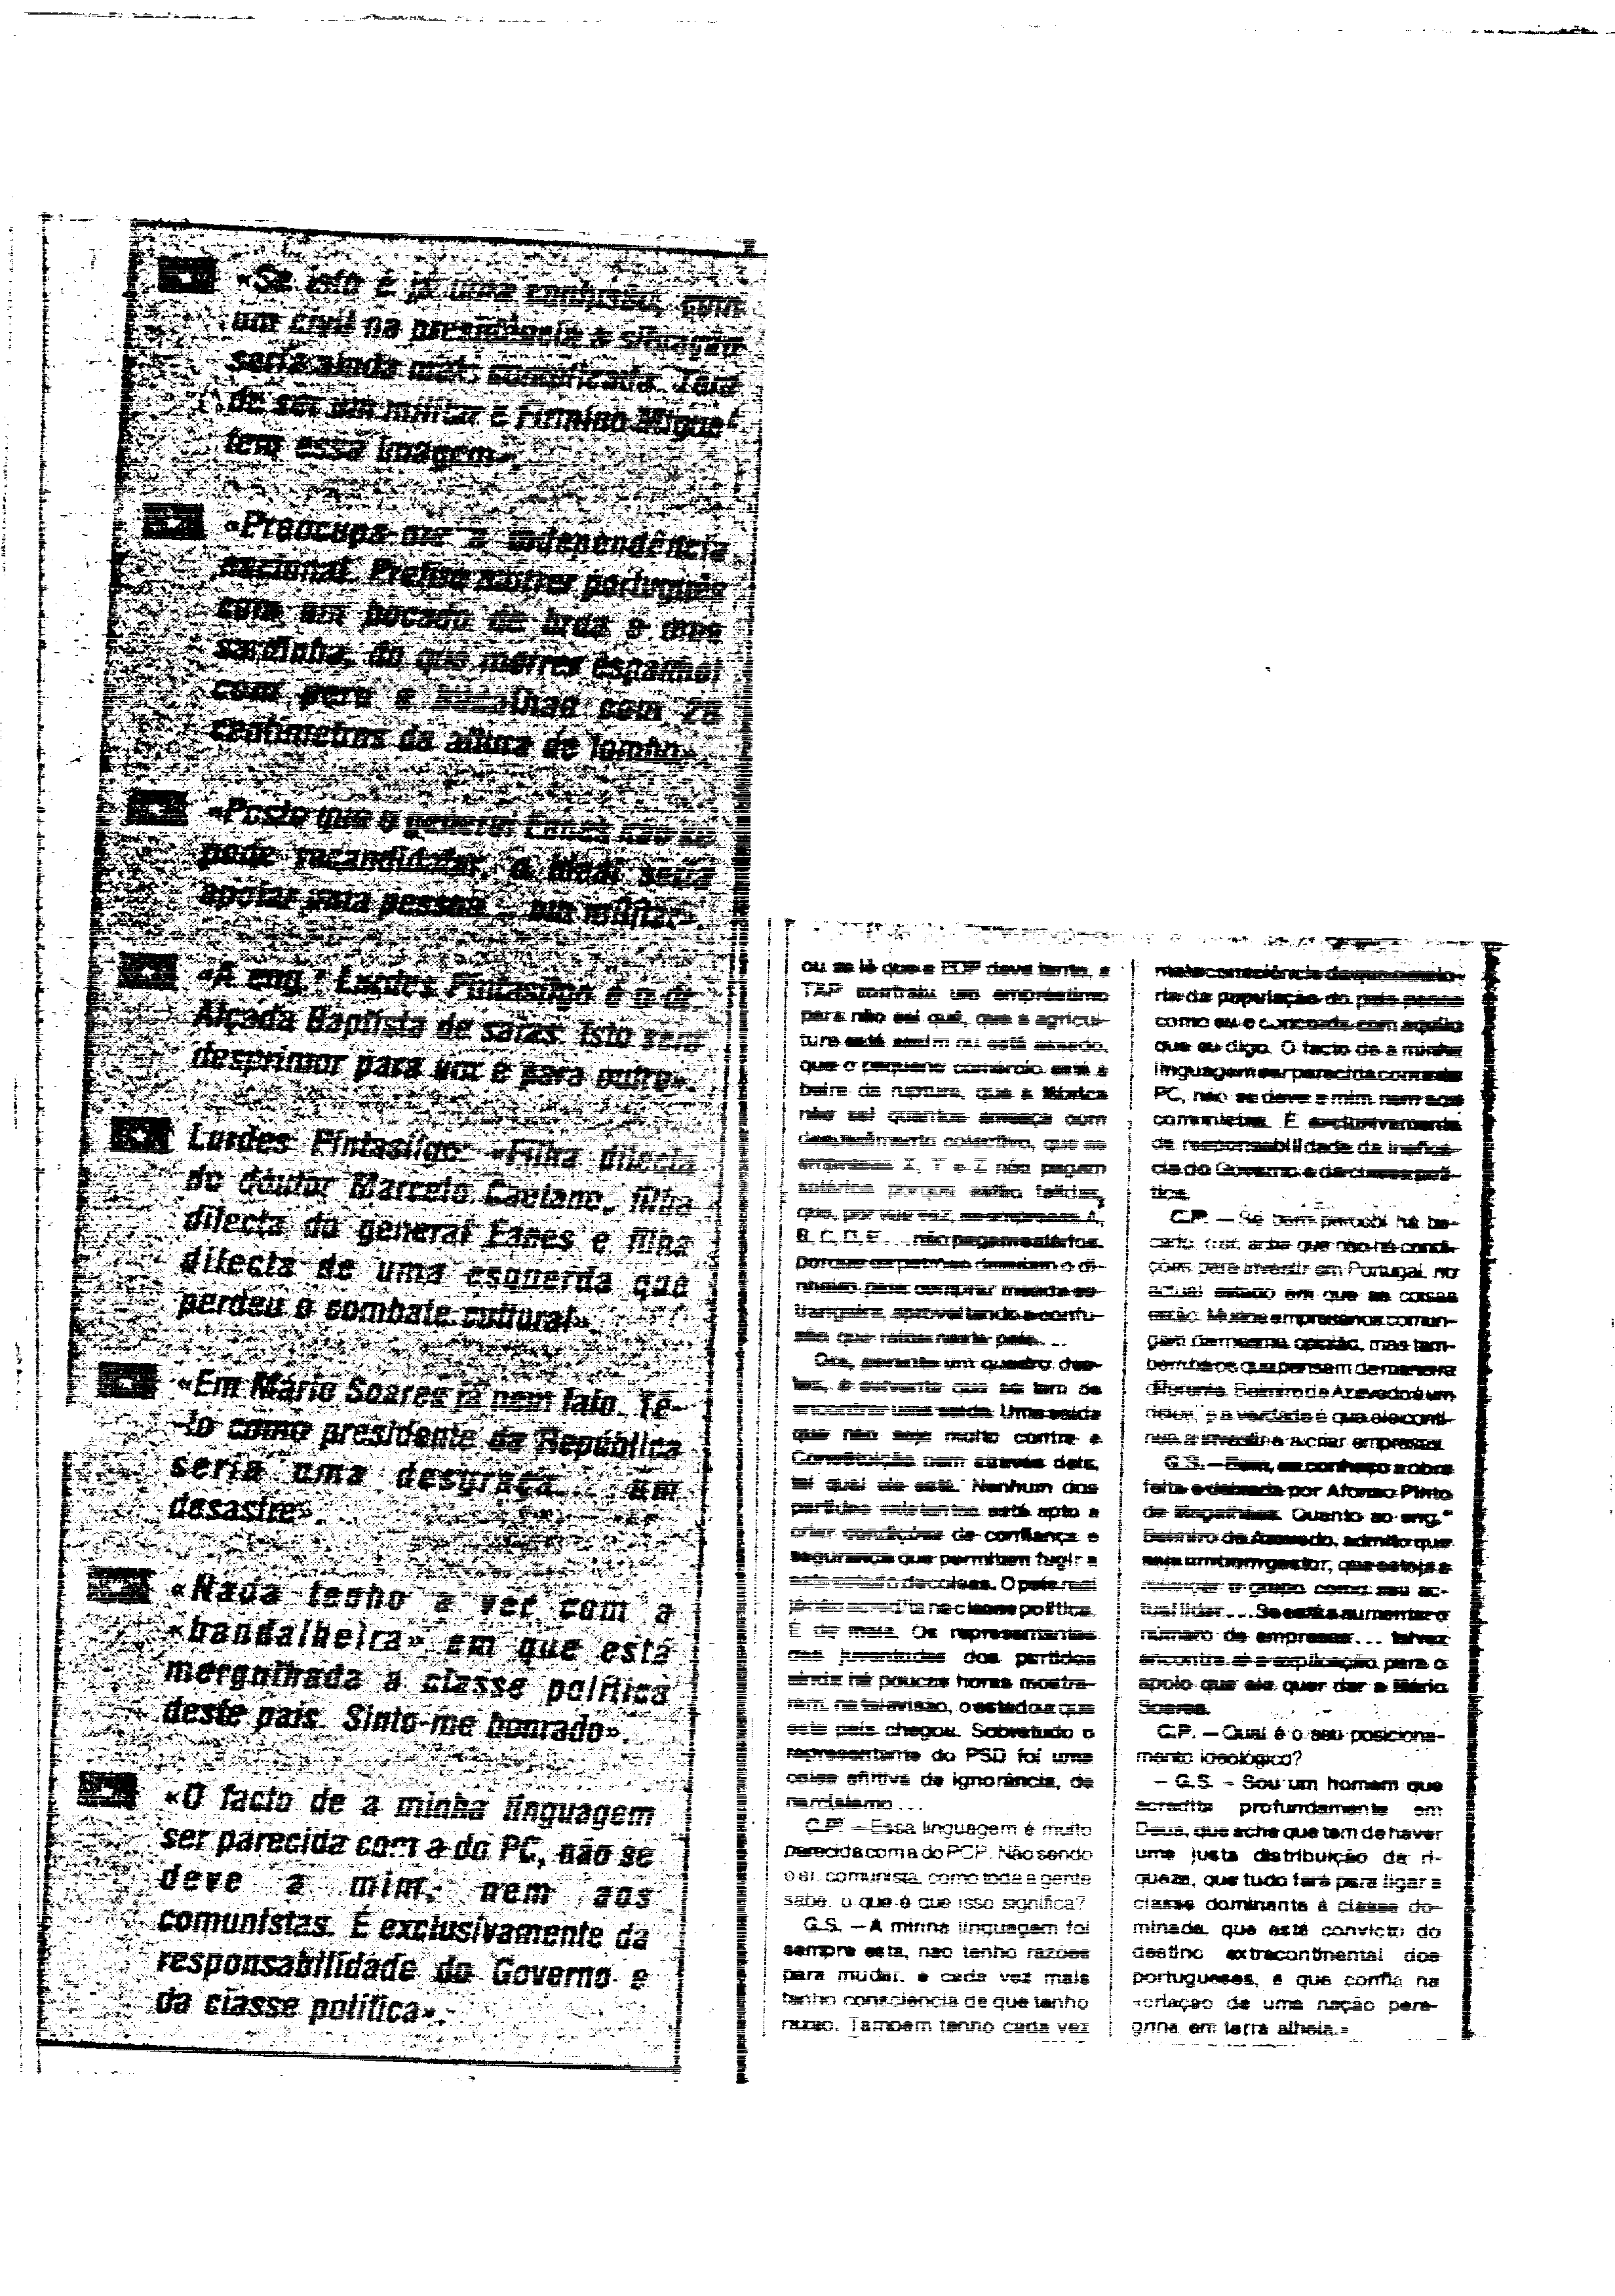 «Se isto é já uma confusão, com
um civil na presidência a situação
seria ainda mais complicada. Terá
de ser um militar e Firmino Miguel
tem essa imagem».
«Preocupa-me a independência
nacional. Prefiro morrer português
com um bocado de broa e uma
sardinha, do que morrer espanhol
com peru e bacalhau com 28
centímetros da altura de lombo».
«Posto que o general Eanes não se
pode recandidatar, o ideal seria
apoiar uma pessoa — um militar».
«A eng.ª Lurdes Pintasilgo é o dr.
Alçada Baptista de saias. Isto sem
desprimor para um e para outro».
Lurdes Pintasilgo: «Filha dilecta
do doutor Marcelo Caetano, filha
dilecta do general Eanes e filha
dilecta de uma esquerda que
perdeu o combate cultural».
«Em Mário Soares já nem falo. Tê-
-lo como presidente da República
seria uma desgraça... um
desastre».
«Nada tenho a ver com a
«bandalheira» em que está
mergulhada a classe política
deste país. Sinto-me honrado».
«O facto de a minha linguagem
ser parecida com a do PC, não se
deve a mim, nem aos
comunistas. É exclusivamente da
responsabilidade do Governo e
da classe política».
ou se lê que a EDP deve tanto, a
TAP contraiu um empréstimo
para não sei quê, que a agricul-
tura está assim ou está assado,
que o pequeno comércio está à
beira da ruptura, que a fábrica
não sei quantos ameaça com
despedimento colectivo, que as
empresas X, Y e Z não pagam
salários porque estão falidas,
que, por sua vez, as empresas A,
B, C, D, E... não pagam salários.
porque os patrões desviam o di-
nheiro para comprar moeda es-
trangeira, aproveitando a confu-
são que reina neste país...
Ora, perante um quadro des-
tes, é evidente que se tem de
encontrar uma saída. Uma saída
que não seja muito contra a
Constituição nem através dela,
tal qual ela está. Nenhum dos
partidos existentes está apto a
criar condições de confiança e
segurança que permitam fugir a
este estado de coisas. O país real
já não acredita na classe política.
É de mais. Os representantes
das juventudes dos partidos
ainda há poucas horas mostra-
ram, na televisão, o estado a que
este país chegou. Sobretudo o
representante do PSD foi uma
coisa aflitiva de ignorância, de
narcisismo...
C.P. — Essa linguagem é muito
parecida com a do PCP. Não sendo
o sr. comunista, como toda a gente
sabe, o que é que isso significa?
G.S. — A minha linguagem foi
sempre esta, não tenho razões
para mudar, e cada vez mais
tenho consciência de que tenho
razão. Também tenho cada vez
mais consciência de que a maio-
ria da população do país pensa
como eu e concorda com aquilo
que eu digo. O facto de a minha
linguagem ser parecida com a do
PC, não se deve a mim, nem aos
comunistas. É exclusivamente
da responsabilidade da inefícá-
cia do Governo e da classe polí-
tica.
C.P. — Se bem percebi há bo-
cado, o sr. acha que não há condi-
ções para investir em Portugal, no
actual estado em que as coisas
estão. Muitos empresários comun-
gam da mesma opinião, mas tam-
bém há os que pensam de maneira
diferente. Belmiro de Azevedo é um
deles, e a verdade é que ele conti-
nua a investir e a criar empresas.
G.S. — Bem, eu conheço a obra
feita e deixada por Afonso Pinto
de Magalhães. Quanto ao eng.º
Belmiro de Azevedo, admito que
seja um bom gestor, que esteja a
relançar o grupo como seu ac-
tual líder... Se está a aumentar o
número de empresas... talvez
encontre aí a explicação para o
apoio que ele quer dar a Mário
Soares.
C.P. — Qual é o seu posiciona-
mento ideológico?
— G.S. — Sou um homem que
acredita profundamente em
Deus, que acha que tem de haver
uma justa distribuição da ri-
queza, que tudo fará para ligar a
classe dominante à classe do-
minada, que está convicto do
destino extracontinental dos
portugueses, e que confia na
«criação de uma nação pere-
grina em terra alheia.»